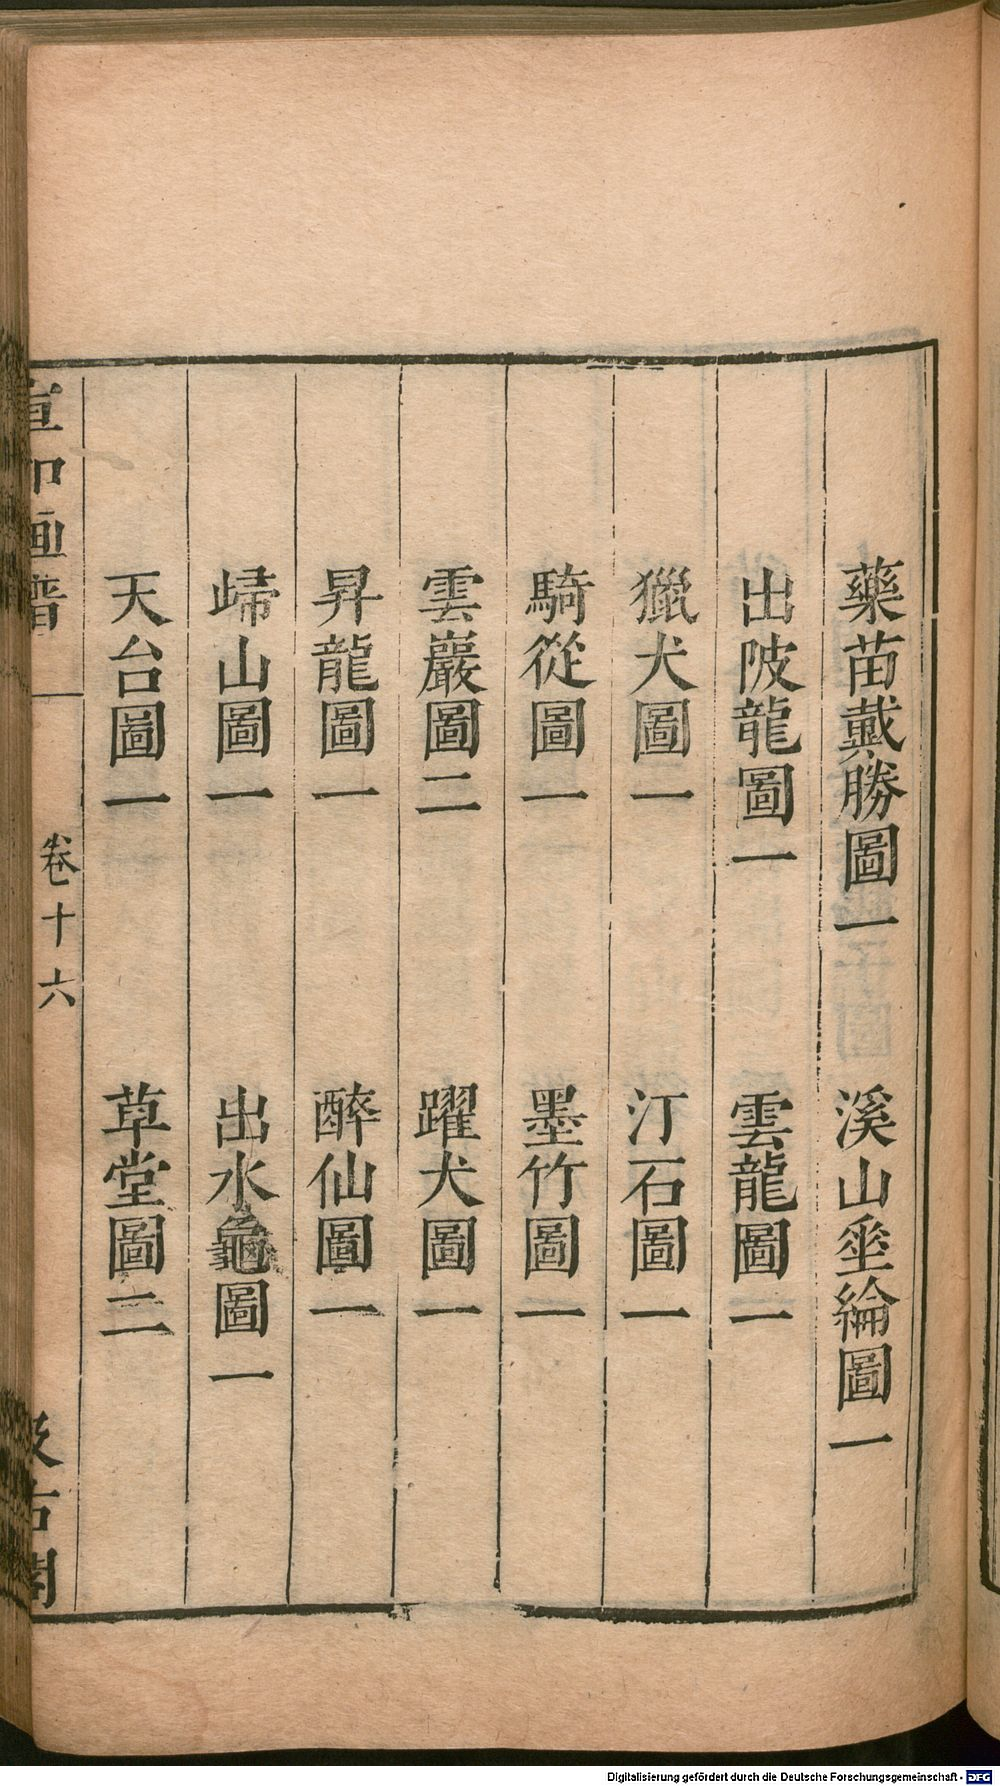 藥苗戴勝圖一　溪山垂綸圖一
出陂龍圖一　雲龍圖一
獵犬圖一　汀石圖一
騎從圖一　墨竹圖一
雲巖圖二　躍犬圖一
昇龍圖一　醉仙圖一
歸山圖一　出水龜圖一
天台圖一　草堂圖二
宣和画譜　卷十六　汲古閣
Digitalisierung gefördert durch die Deutsche Forschungsgemeinschaft - DFG